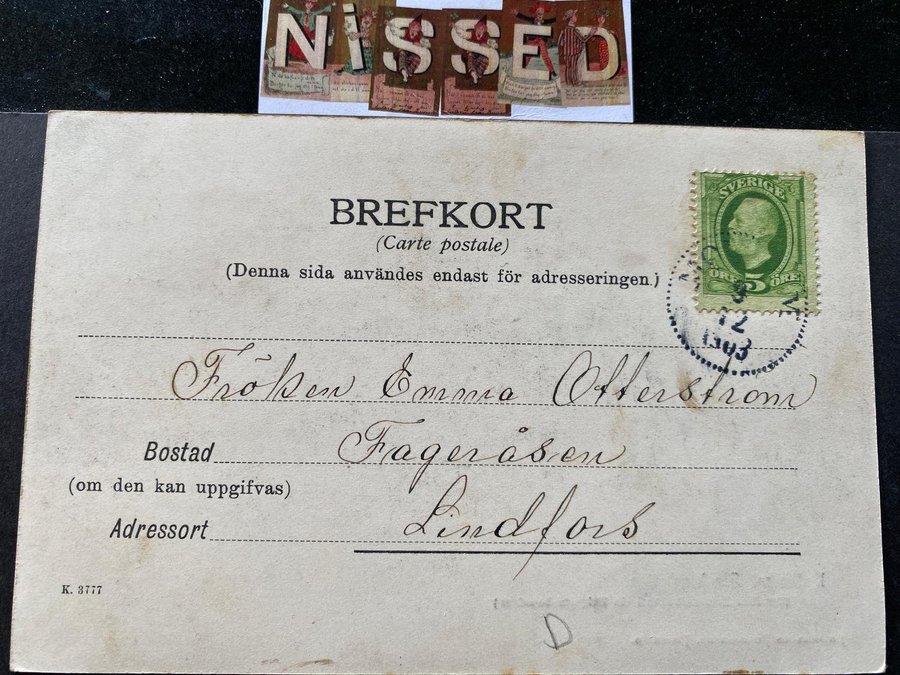 NISSED
BREFKORT
(Carte postale)
(Denna sida användes endast för adresseringen.)
SVERIGE
ÖRE 5 ÖRE
9
12
1903
Fröken Emma Otterstrom
Bostad Fageråsen
(om den kan uppgifvas)
Adressort Lindfors
K. 3777
D